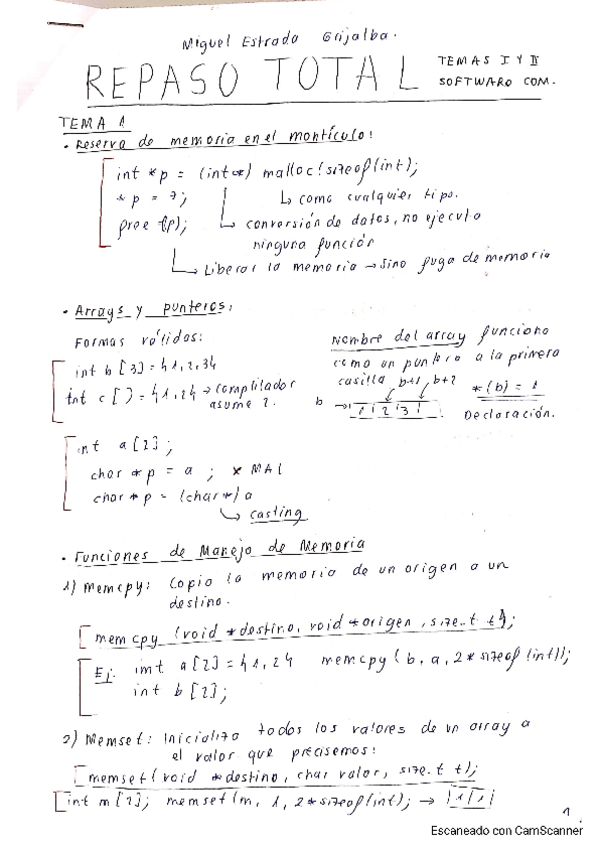 Miguel Estrada Grijalba.
REPASO TOTAL
TEMAS I Y II
SOFTWARO COM.
TEMA 1
• Reserva de memoria en el montículo:
int *p = (int*) malloc(sizeof(int);
*p = 7;
↳ como cualquier tipo.
free (p);
↳ conversión de datos, no ejecuta
ninguna función
↳ Liberar la memoria → Sino fuga de memoria
• Arrays y punteros:
Formas válidas:
int b[3] = {1,2,3}
int c[] = {1,2} → compilador
asume 2.
Nombre del array funciona
como un puntero a la primera
casilla
b+1
b+2
*(b) = 1
b → |1|2|3|
Declaración.
int a[2];
char *p = a ; x MAL
char *p = (char*) a
↳ casting
• Funciones de Manejo de Memoria
1) Memcpy: Copia la memoria de un origen a un
destino.
memcpy (void *destino, void *origen, size_t t);
Ej: int a[2] = {1,2} memcpy(b, a, 2*sizeof(int));
int b[2];
2) Memset: Inicializa todos los valores de un array a
el valor que precisemos:
memset(void *destino, char valor, size_t t);
int m[2]; memset(m, 1, 2*sizeof(int); → |1|1|
1
Escaneado con CamScanner